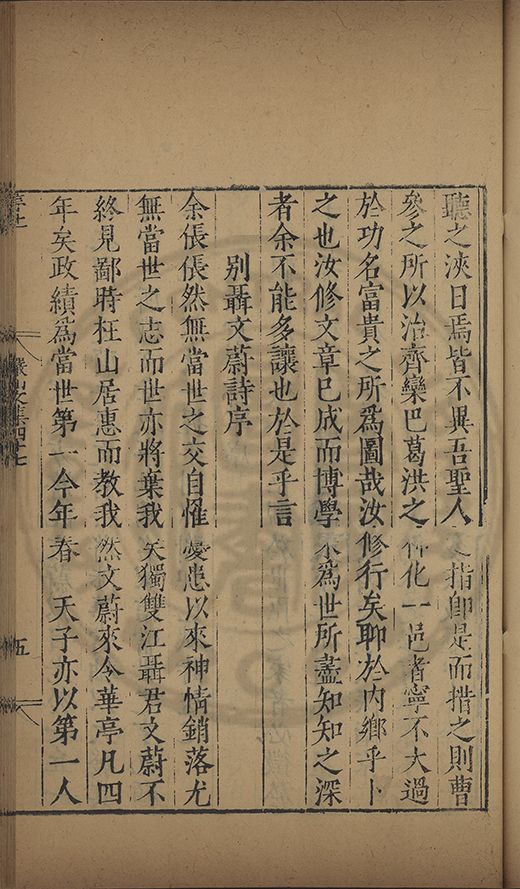 聽之浹日焉皆不異吾聖人之指卽是而措之則曹
參之所以治齊欒巴葛洪之 化一邑者寧不大過
於功名富貴之所爲圖哉汝修行矣聊於内鄉乎卜
之也汝修文章已成而博學 爲世所盡知知之深
者余不能多讓也於是乎言
别聶文蔚詩序
余倀倀然無當世之交自惟憂患以來神情銷落尤
無當世之志而世亦將棄我矣獨雙江聶君文蔚不
終見鄙時枉山居惠而教我然文蔚來令華亭凡四
年矣政績爲當世第一今年春 天子亦以第一人
山文集四十七
五